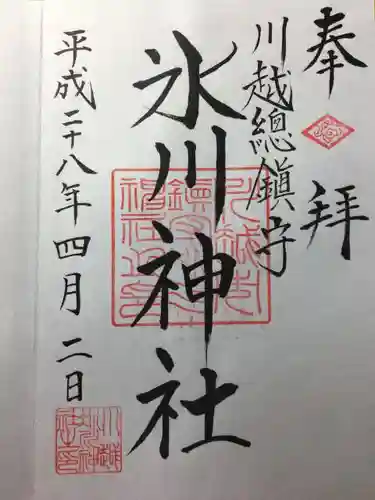 奉拝
川越總鎮守
氷川神社
平成二十八年四月二日